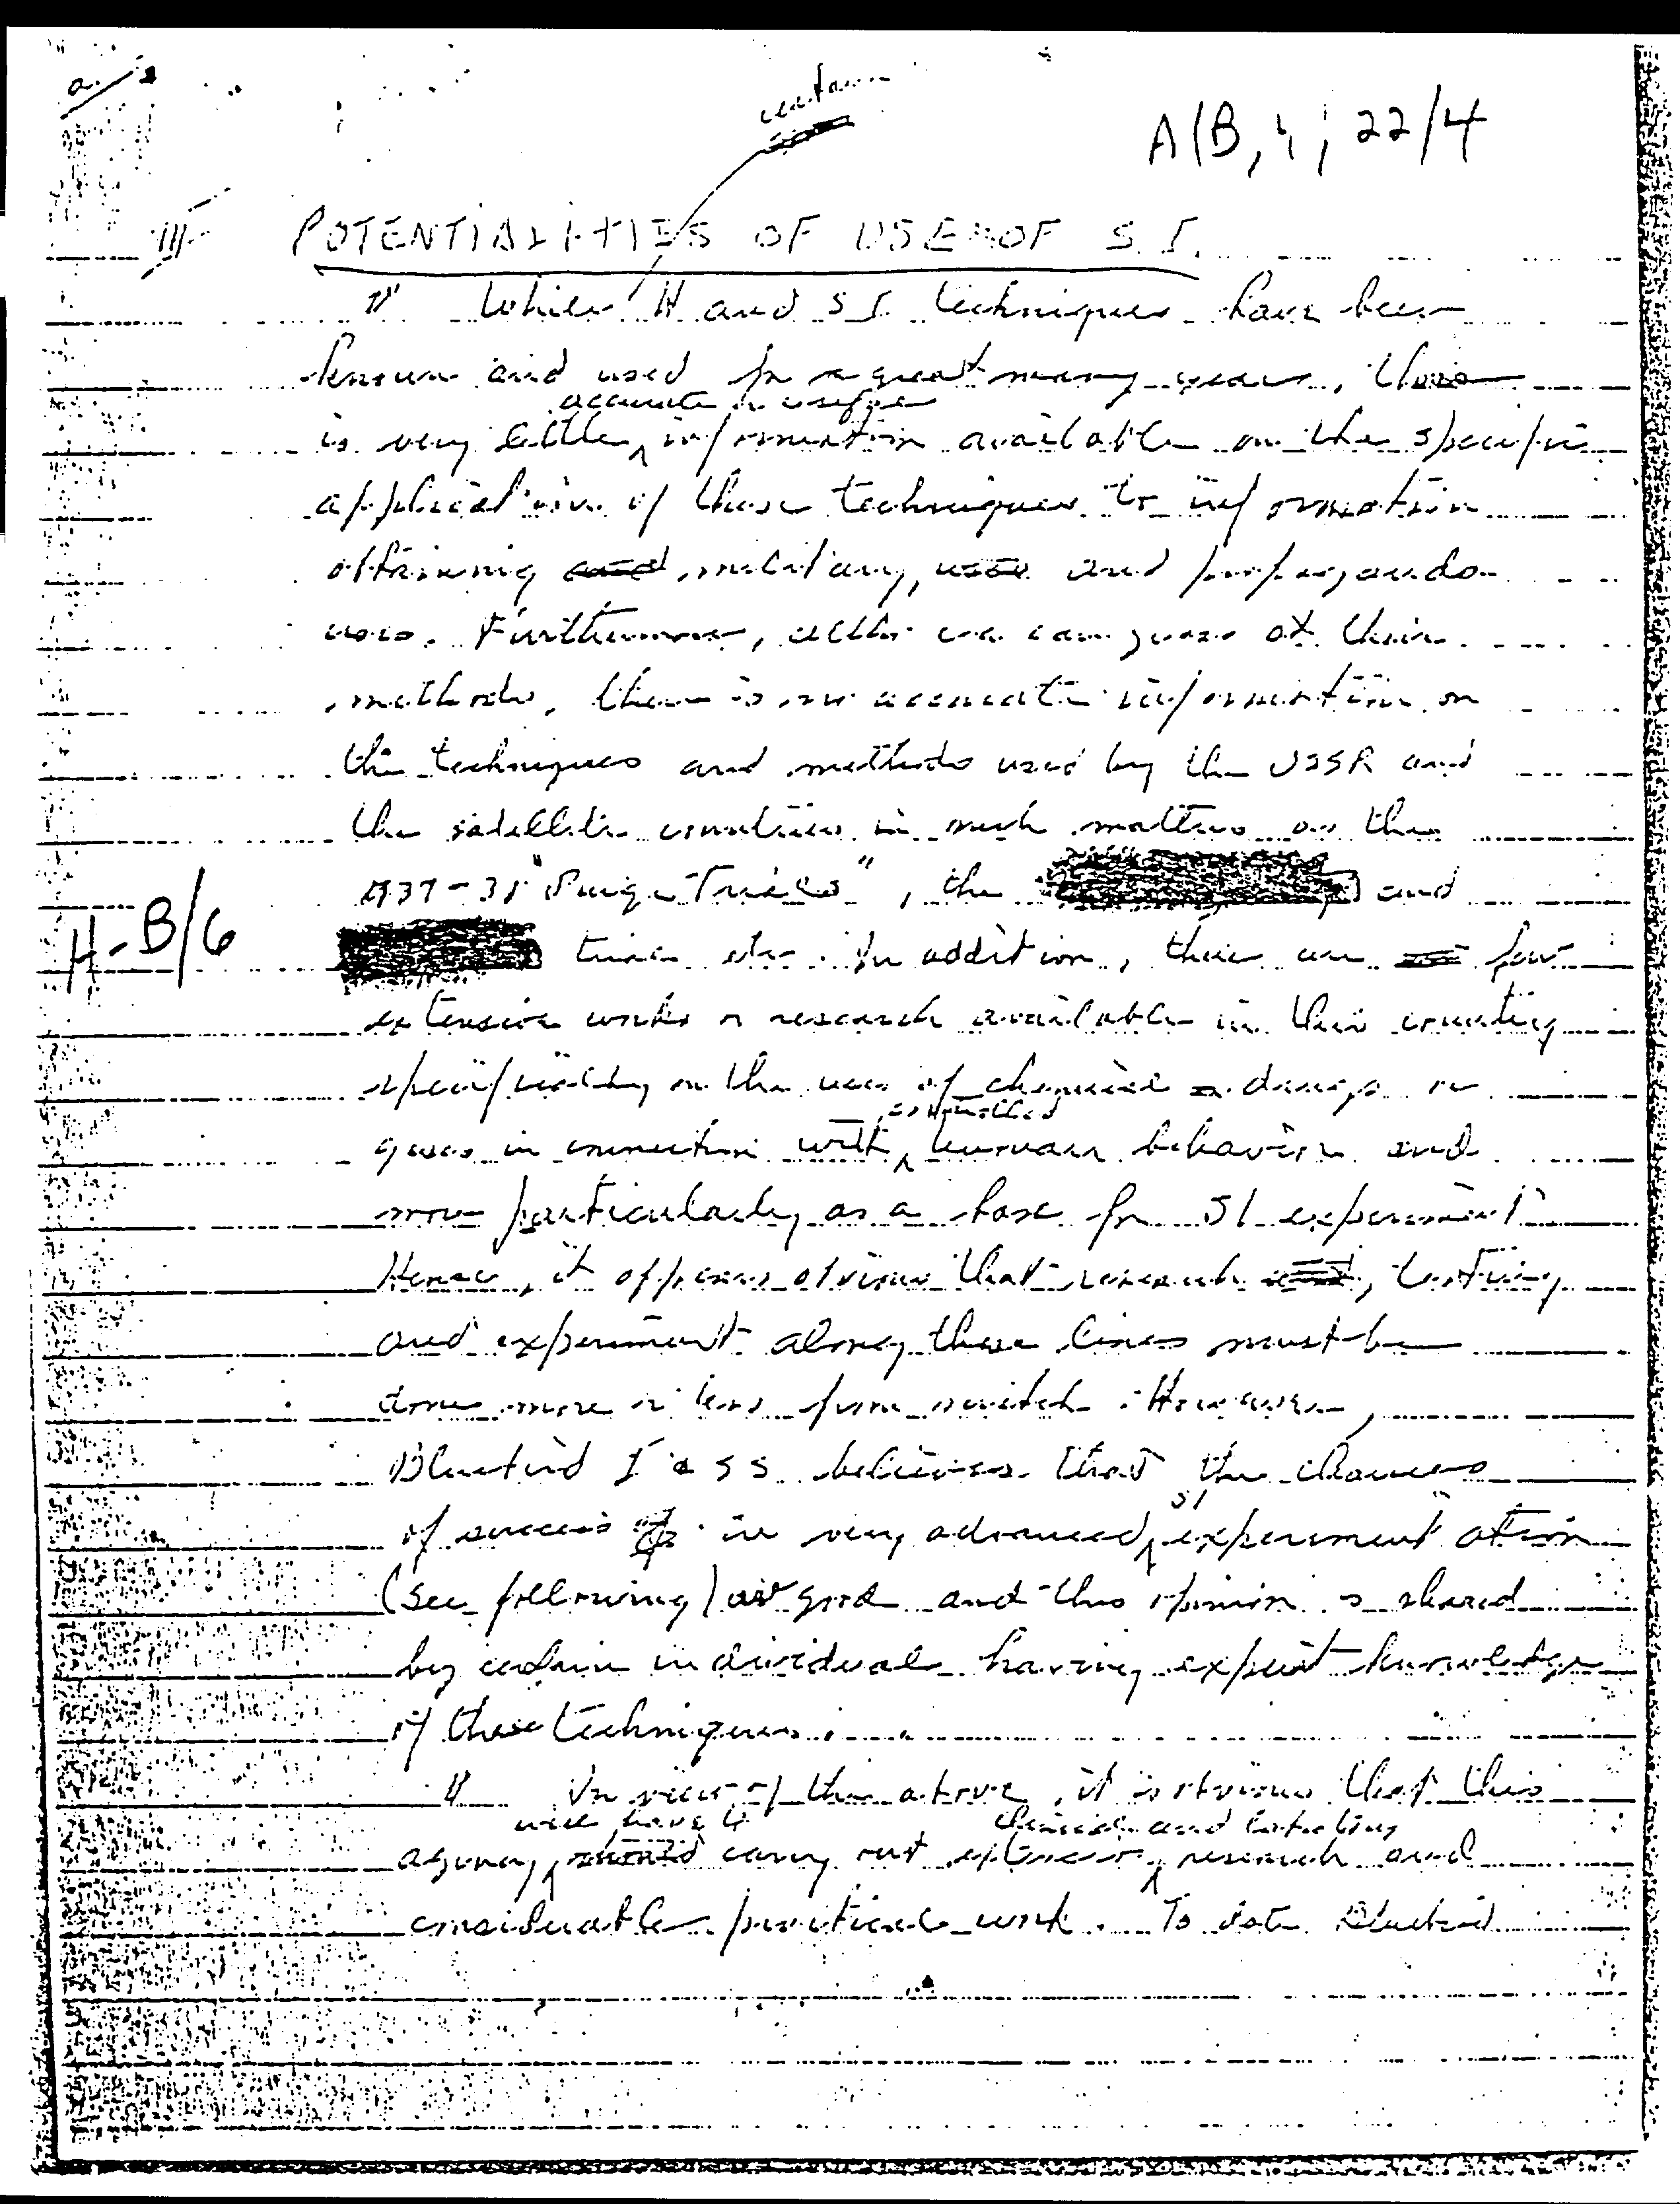 certain
A/B, 4, 22/4
III POTENTIALITIES OF USE OF S.I.
While H and SI techniques have been
known and used for a great many years, there
accurate or
is very little information available on the specific
application of these techniques to information
obtaining and military, uses and propaganda
uses. Furthermore, we can guess at their
methods, there is no accurate information on
the techniques and methods used by the USSR and
the satellite countries in such matters as the
1937-38 "Purge Trials", the and
H-B/6
trials etc. In addition, there are few
extensive works or research available in this country
specifically on the use of chemical drugs or
controlled
gases in connection with human behavior and
more particularly as a base for SI experiment
Hence, it appears obvious that research and, testing
and experiment along these lines must be
done more or less from scratch. However,
Bluebird believes that the chances
SI
of success in very advanced experimentation
(see following) are good and this opinion is shared
by certain individuals having expert knowledge
of these techniques.
In view of the above, it is obvious that this
will have to
clinical and laboratory
agency should carry out extensive research and
considerable practical work. To date Bluebird